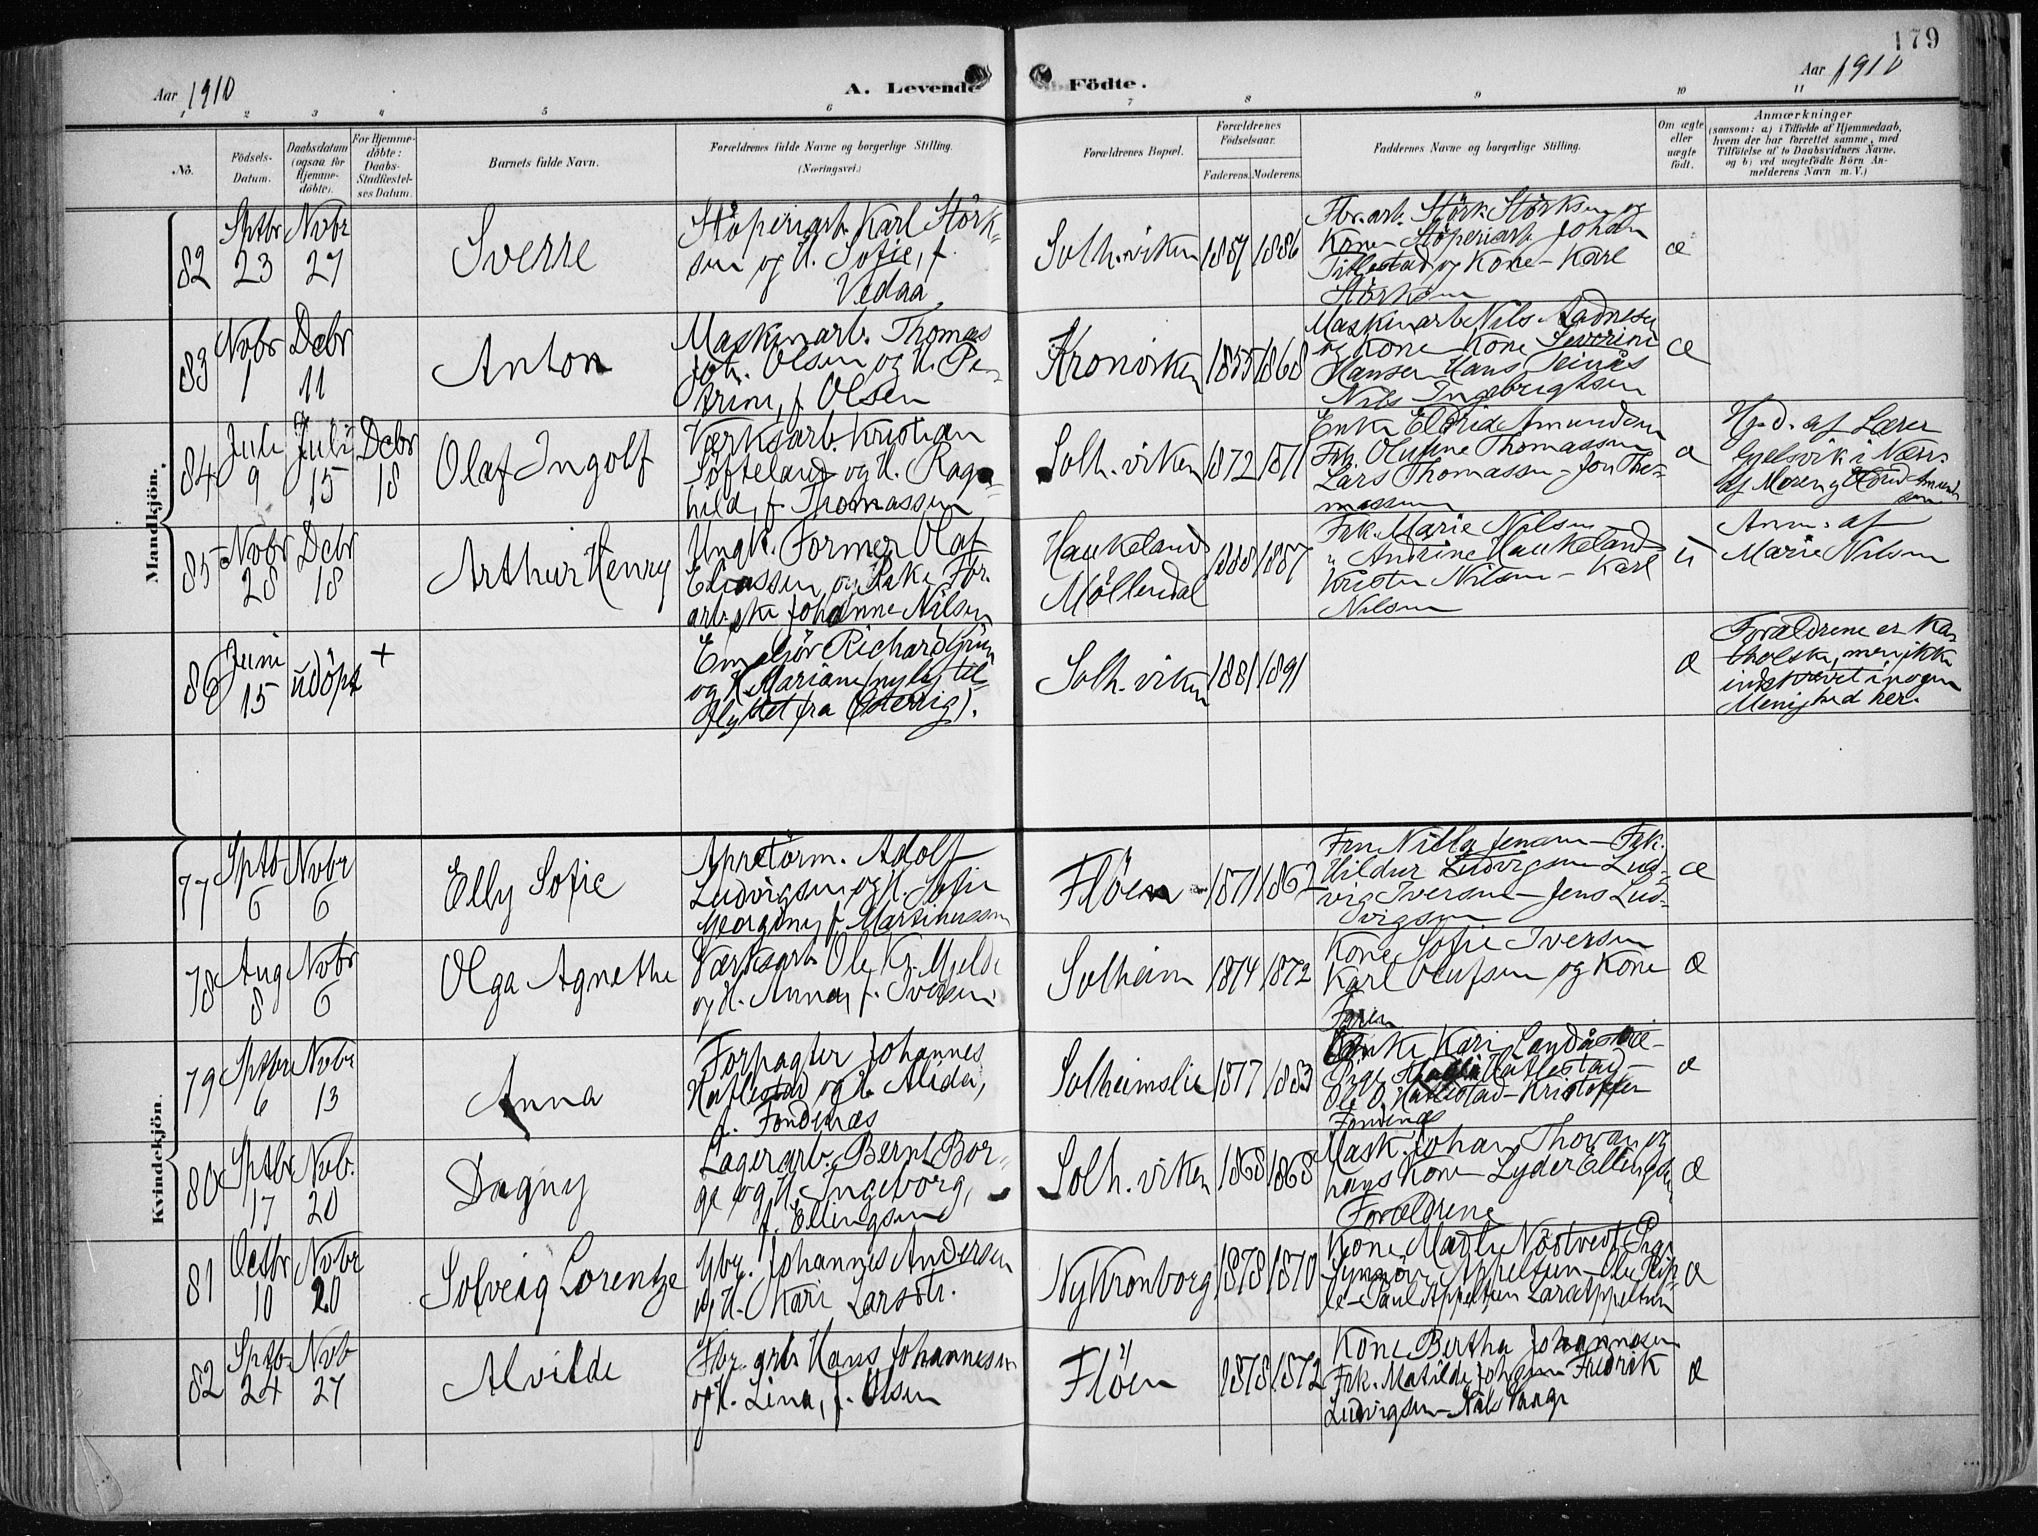 179
Aar 1910
A. Levende Födte.
Aar 1910
1 2 3 4 5 6 7 8 9 10 11
No.
Födsels-
Datum.
Daabsdatum
(ogsaa for
Hjemme-
döbte).
For Hjemme-
döbte:
Daabs-
Stadfæstel-
ses Datum.
Barnets fulde Navn.
Forældrenes fulde Navne og borgerlige Stilling.
(Næringsvei.)
Forældrenes Bopæl.
Forældrenes
Födselsaar.
Faderens. Moderens.
Faddernes Navne og borgerlige Stilling.
Om ægte
eller
uægte
født.
Anmærkninger
(saasom: a) i Tilfælde af Hjemmedaab,
hvem der har forrettet samme, med
Tilföielse af to Daabsvidners Navne,
og b) ved uægtefödte Börn An-
melderens Navn m. V.)
Mandkjön.
82
Sptbr
23
Novbr
27
Sverre
Stöperiarb. Karl Störk-
sen og H. Sofie, f.
Vedaa.
Solh.viken
1887
1886
Fbr.arb. Störk Störksen og
Kone – Stöperiarb. Johan
Tillestad og Kone – Karl
Störksen
æ
83
Novbr
1
Dcbr
11
Anton
Maskinarb. Thomas
Joh. Olsen og H. Pe-
trine, f. Olsen
Kronviken
1855
1868
Maskinarb. Nils Aadnesen
og Kone – Kone Severine
Hansen Hans
Nils Ingebrigtsen
æ
84
Juli
9
Juli
15
Dcbr
18
Olaf Ingolf
Værksarb. Kristian
Softeland og H. Rag-
hild, f. Thomassen
Solh. viken
1872
1871
Enke Eldrid Amundsen
Frk. Oluffine Thomassen
Lars Thomassen – Jon Tho-
massen
æ
Hjd. af Lærer
Gjelsvik i Nærv.
af Moren og Eldrid Amund
sen
85
Novbr
28
Dcbr
18
Arthur Henry
Ungk. Former Olaf
Eliassen og Pike Fbr.
arb.ske Johanne Nilsen
Haukeland
Möllendal
1888
1887
Frk. Marie Nilsen
" Andrine Haukeland
Kristen Nilsen – Karl
Nilsen
ü
Anm. af
Marie Nilsen
86
Juni
15
udöpt
+
Emaljör Richard Grün
og H. Mariane (nylig til-
flyttet fra Österrig).
Solh. viken
1881
1891
æ
Forældrene er ka-
tholske, men ikke
indskrevet i nogen
Menighed her.
Kvindekjön.
77
Sptb
6
Novbr
6
Elly Sofie
Apretörm. Adolf
Ludvigsen og H. Sofie
Georgine, f. Martinussen
Flöen
1871
1862
Fru Nilla Jensen – Frk.
Hildur Ludvigsen – Lud-
vig Iversen – Jens Lud-
vigsen
æ
78
Aug
8
Novbr
6
Olga Agnethe
Værksarb. Ole K. Mjelde
og H. Anna, f. Iversen
Solheim
1874
1872
Kone Sofie Iversen
Karl Olufsen og Kone
Faren
æ
79
Sptbr
6
Novbr
13
Anna
Forpagter Johannes
Hatlestad og H. Alida,
f. Fondenæs
Solheimslie
1877
1883
Enke Kari Landåslie –
Hatlestad –
Ole O. Hatlestad – Kristoffer
Fondenæs
æ
80
Sptbr
17
Nvb.
20
Dagny
Lagerarb. Bernt Bor-
ge og H. Ingeborg,
f. Ellingsen
Solh. viken
1868
1868
Mask. Johan Thowan og
hans Kone Lyder Ellingsen
Forældrene
æ
81
Octbr
10
Novbr
20
Solveig Lorentze
Gbr. Johannes Andersen
og H. Kari Larsdtr.
Ny Kronborg
1878
1870
Kone Marthe Nöstvedt Pige
Synnöve Appeltun – Ole
– Paul Appeltun Lars Appeltun
æ
82
Sptb
24
Nvb
27
Alvilde
Fbr. arb. Hans Johannesen
og H. Lina, f. Olsen
Flöen
1878
1872
Kone Bertha Johannesen
Frk. Matilde Johnsen Fredrik
Ludvigsen – Nils Vange
æ